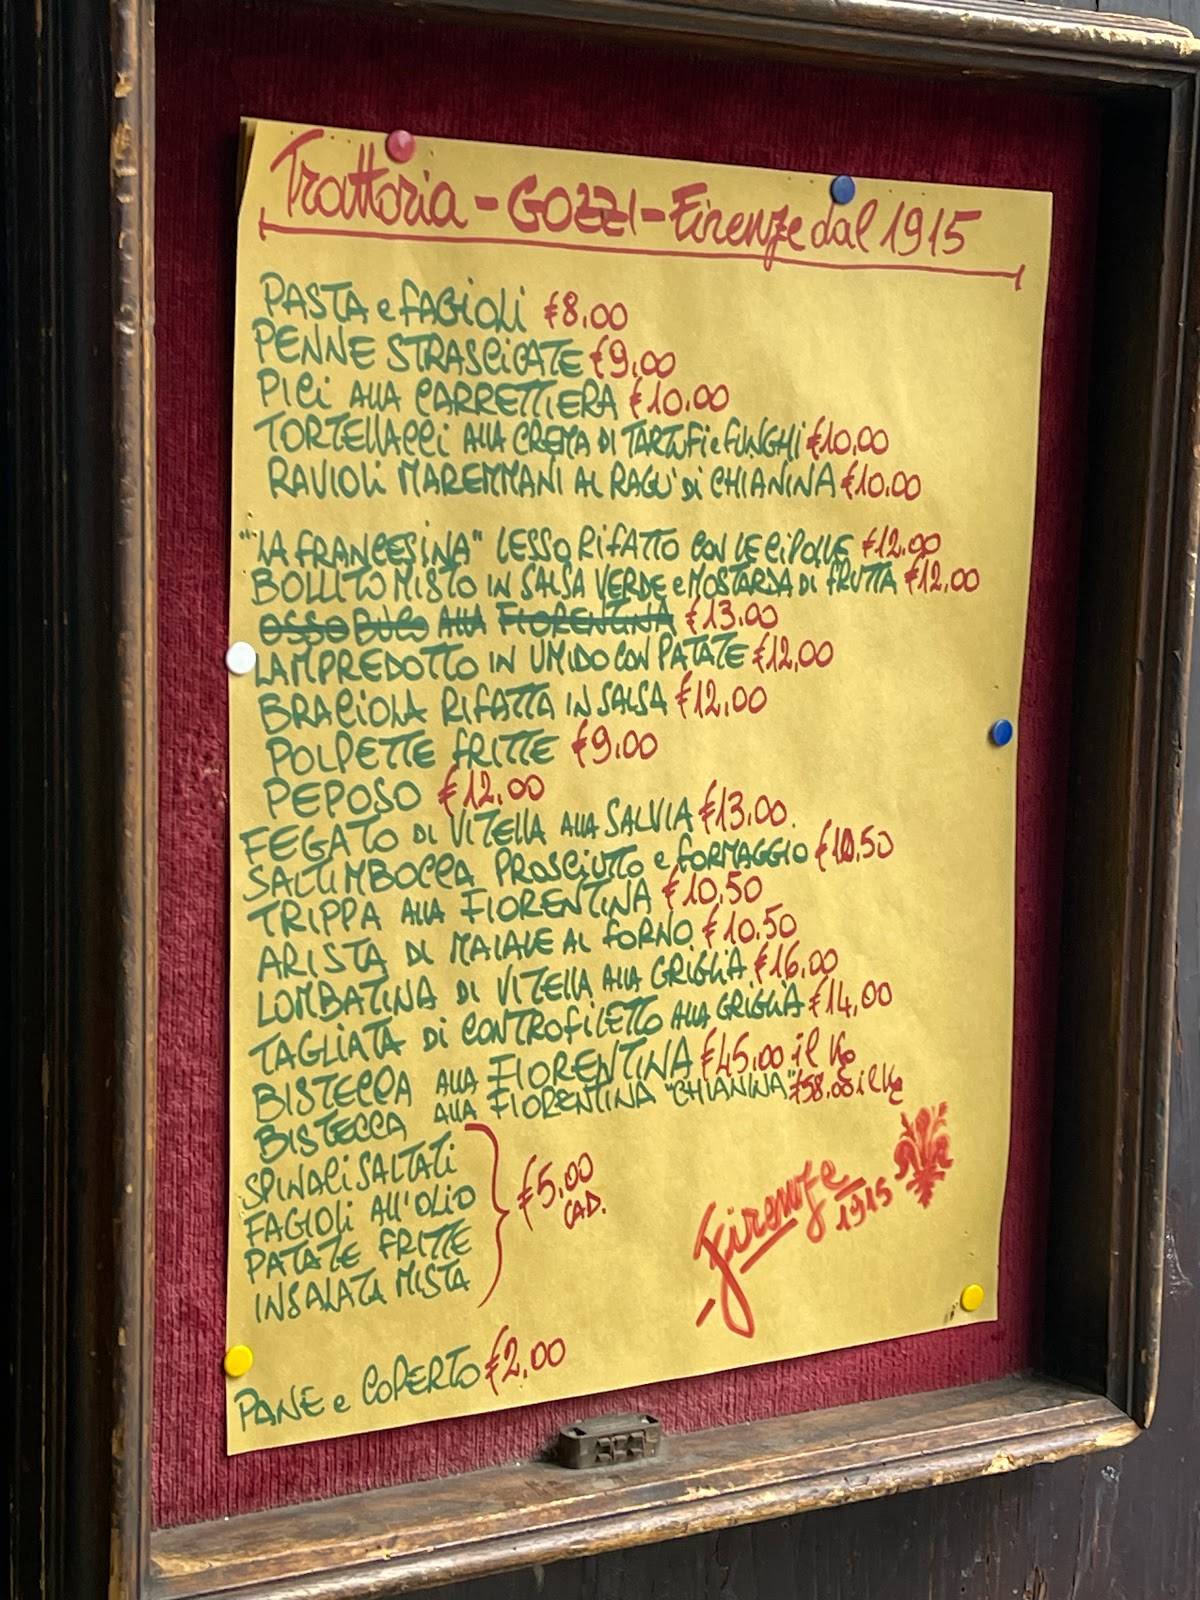 Trattoria - GOZZI - Firenze dal 1915
PASTA e FAGIOLI €8,00
PENNE STRASCICATE €9,00
PICI ALLA CARRETTIERA €10,00
TORTELLACCI ALLA CREMA DI TARTUFI e FUNGHI €10,00
RAVIOLI MAREMMANI AL RAGU' DI CHIANINA €10,00
"LA FRANCESINA" LESSO RIFATTO CON LE CIPOLLE €12,00
BOLLITO MISTO IN SALSA VERDE e MOSTARDA DI FRUTTA €12,00
OSSOBUCO ALLA FIORENTINA €13,00
LAMPREDOTTO IN UMIDO CON PATATE €12,00
BRACIOLA RIFATTA IN SALSA €12,00
POLPETTE FRITTE €9,00
PEPOSO €12,00
FEGATO DI VITELLA ALLA SALVIA €13,00
SALTIMBOCCA PROSCIUTTO e FORMAGGIO €10,50
TRIPPA ALLA FIORENTINA €10,50
ARISTA DI MAIALE AL FORNO €10,50
LOMBATINA DI VITELLA ALLA GRIGLIA €16,00
TAGLIATA DI CONTROFILETTO ALLA GRIGLIA €14,00
BISTECCA ALLA FIORENTINA €45,00 il Kg
BISTECCA ALLA FIORENTINA "CHIANINA" €58,00 il Kg
SPINACI SALTATI
FAGIOLI ALL'OLIO
PATATE FRITTE
INSALATA MISTA
€5,00
CAD.
Firenze
1915
PANE e COPERTO €2,00